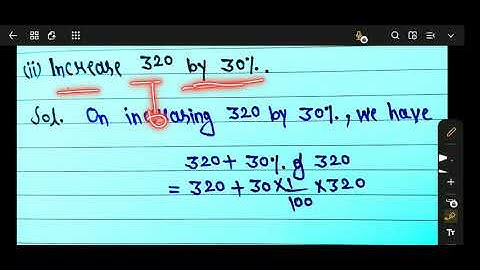 (ii) Increase 320 by 30%.
Sol. On increasing 320 by 30%, we have
320 + 30% of 320
= 320 + 30 × 1/100 × 320